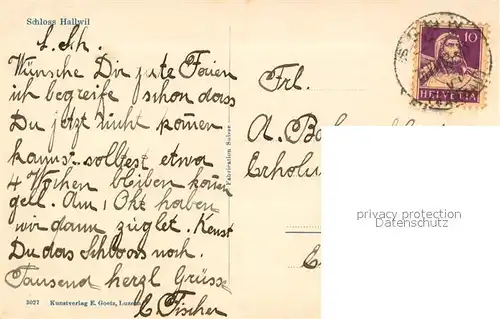 Schloss Hallwil
L. Sch.
Wünsche Dir gute Ferien
ich begreife schon dass
Du jetzt nicht kom̄en
kanns. solltest etwa
4 Wochen bleiben kön̄en
gell. Am 1 Okt haben
wir dann züglet. Kenst
Du das Schloss noch.
Tausend herzl Grüsse
C. Fischer
3027 Kunstverlag E. Goetz, Luzern
Fabrication Suisse
10
HELVETIA
Frl.
A.
Erholu
privacy protection
Datenschutz